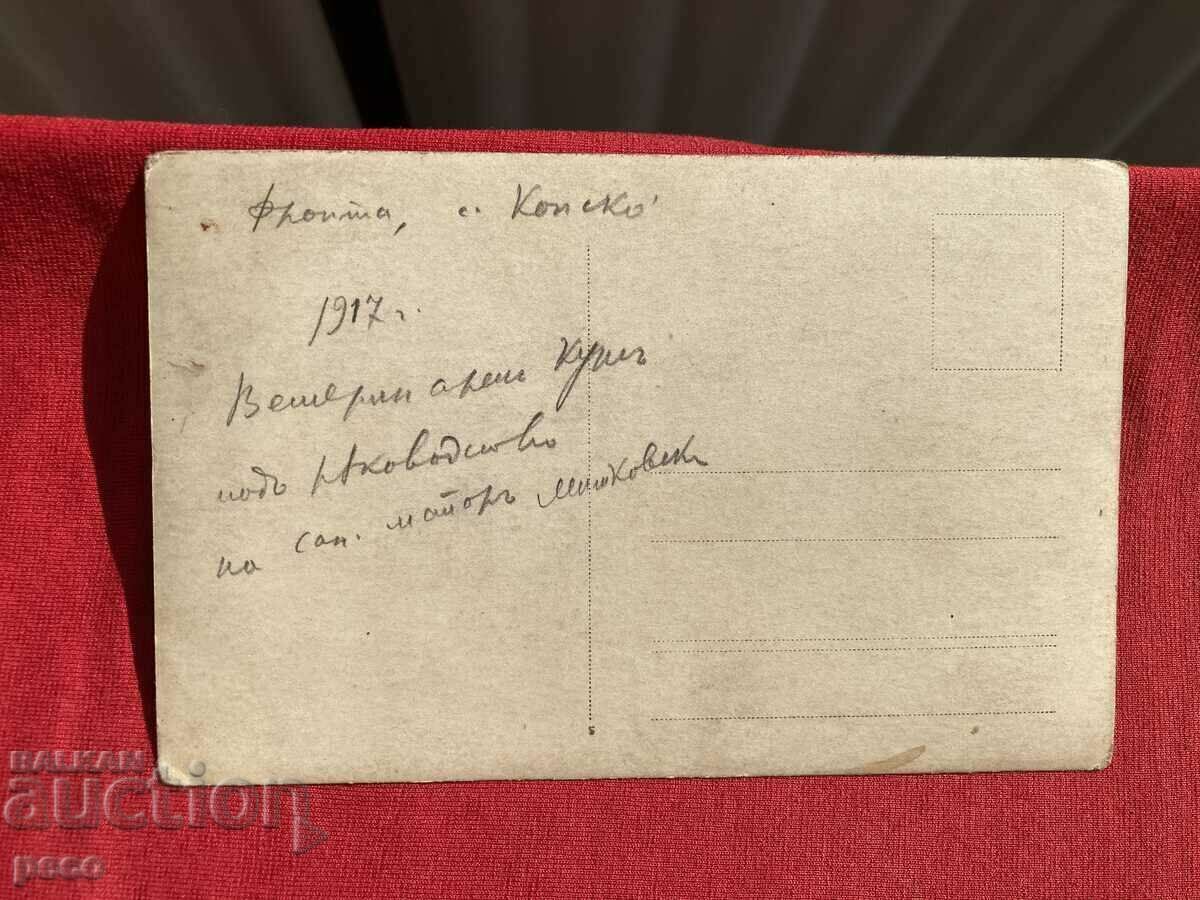 Фронта, с. Конско
1917 г.
Ветеринаренъ Курсъ
подъ рѫководство
на сан. майоръ Митковски
BALKAN
auction
peco